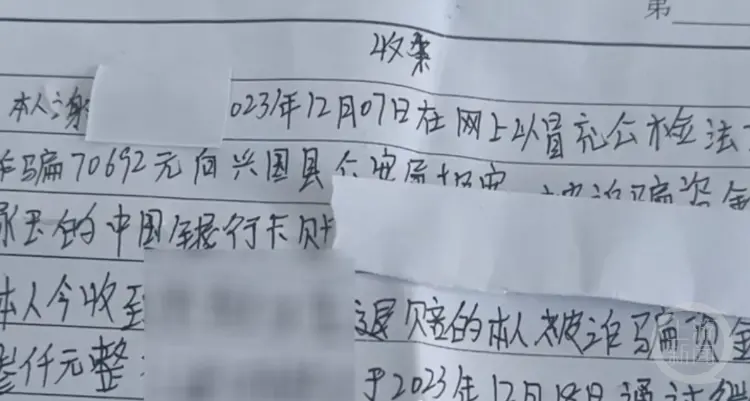 第
收案
本人谢 023年12月07日在网上以冒充公检法
诈骗70692元向兴国县公安局报案 被诈骗资金
的中国银行卡账
本人今收到 退赔的本人被诈骗资金
叁仟元整 于2023年12月18日通过